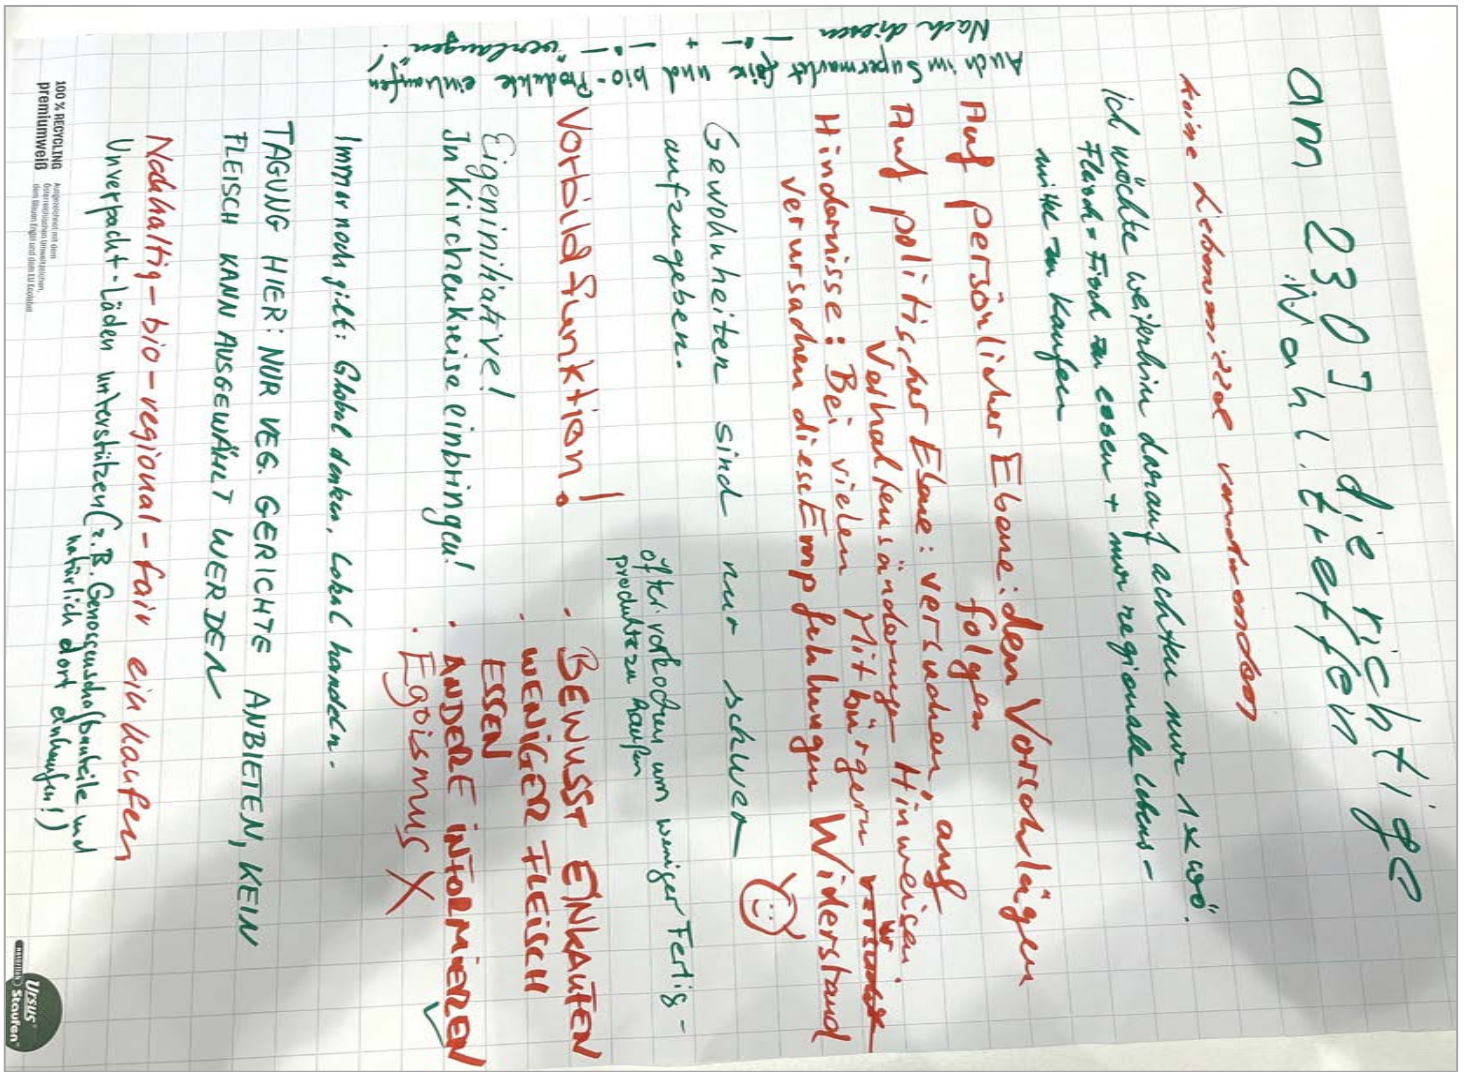 am 23.07 die richtige
Wahl treffen
keine Lebensmittel verschwenden
Ich möchte weiterhin darauf achten nur 1x wö.
Fleisch + Fisch zu essen + nur regionale Lebens-
mittel zu kaufen
Auf persönlicher Ebene: den Vorschlägen
folgen
Auf politischer Ebene: versuchen auf
Verhaltensänderung Hinweisen.
Hindernisse: Bei vielen Mitbürgern
verursachen diese Empfehlungen Widerstand
Gewohnheiten sind nur schwer
aufzugeben.
öfter vorkochen um weniger Fertig-
produkte zu kaufen
Vorbildfunktion!
Eigeninitiative!
In Kirchenkreise einbringen!
· BEWUSST EINKAUFEN
· WENIGER FLEISCH
ESSEN
· ANDERE INFORMIEREN
· Egoismus X
Immer noch gilt: Global denken, Lokal handeln.
TAGUNG HIER: NUR VEG. GERICHTE ANBIETEN, KEIN
FLEISCH KANN AUSGEWÄHLT WERDEN
Nachhaltig - bio - regional - fair einkaufen
Unverpackt-Läden unterstützen (z.B. Genossenschaftsanteile und
natürlich dort einkaufen!)
Auch im Supermarkt faire und bio-Produkte einkaufen
Nach diesen — " — + — " — verlangen!
100 % RECYCLING
premiumweiß
Ausgezeichnet mit dem
österreichischen Umweltzeichen,
dem Blauen Engel und dem EU Ecolabel
URSUS
Staufen